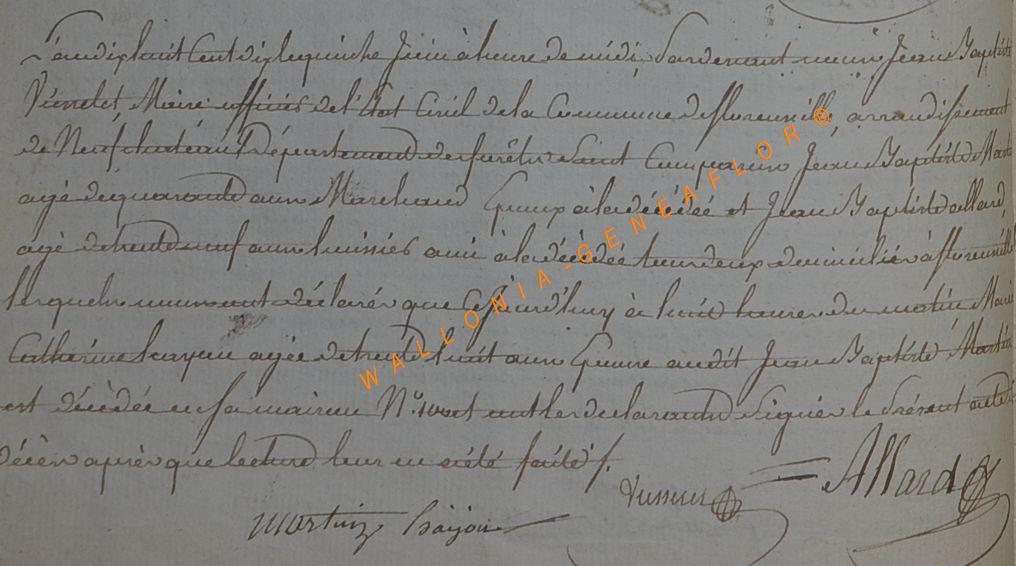 L'an dix huit Cent dix le quinze Juin à heure de midi, Pardevant nous Jean Baptiste
Maire officier de l'État Civil de la Commune de florenville, arrondissement
de Neufchateau Département des forêts Sont Comparus Jean Baptiste Martin
agé de quarante ans Marchand Epoux à la décédée et Jean Baptiste allard,
agé de trente neuf ans huissier ami à la décédée tous deux domiciliés à florenville
lesquels nous ont déclarés que Cejourd'huy à huit heures du matin Marie
Catherine agée de trente huit ans Epouse audit Jean Baptiste Martin
est décédée en sa maison No. et ont les declarants Signés le Présent acte de
Décès après que lecture leur en a été faite
Allard
martin
WALLONIA-GENEAFLOR ©